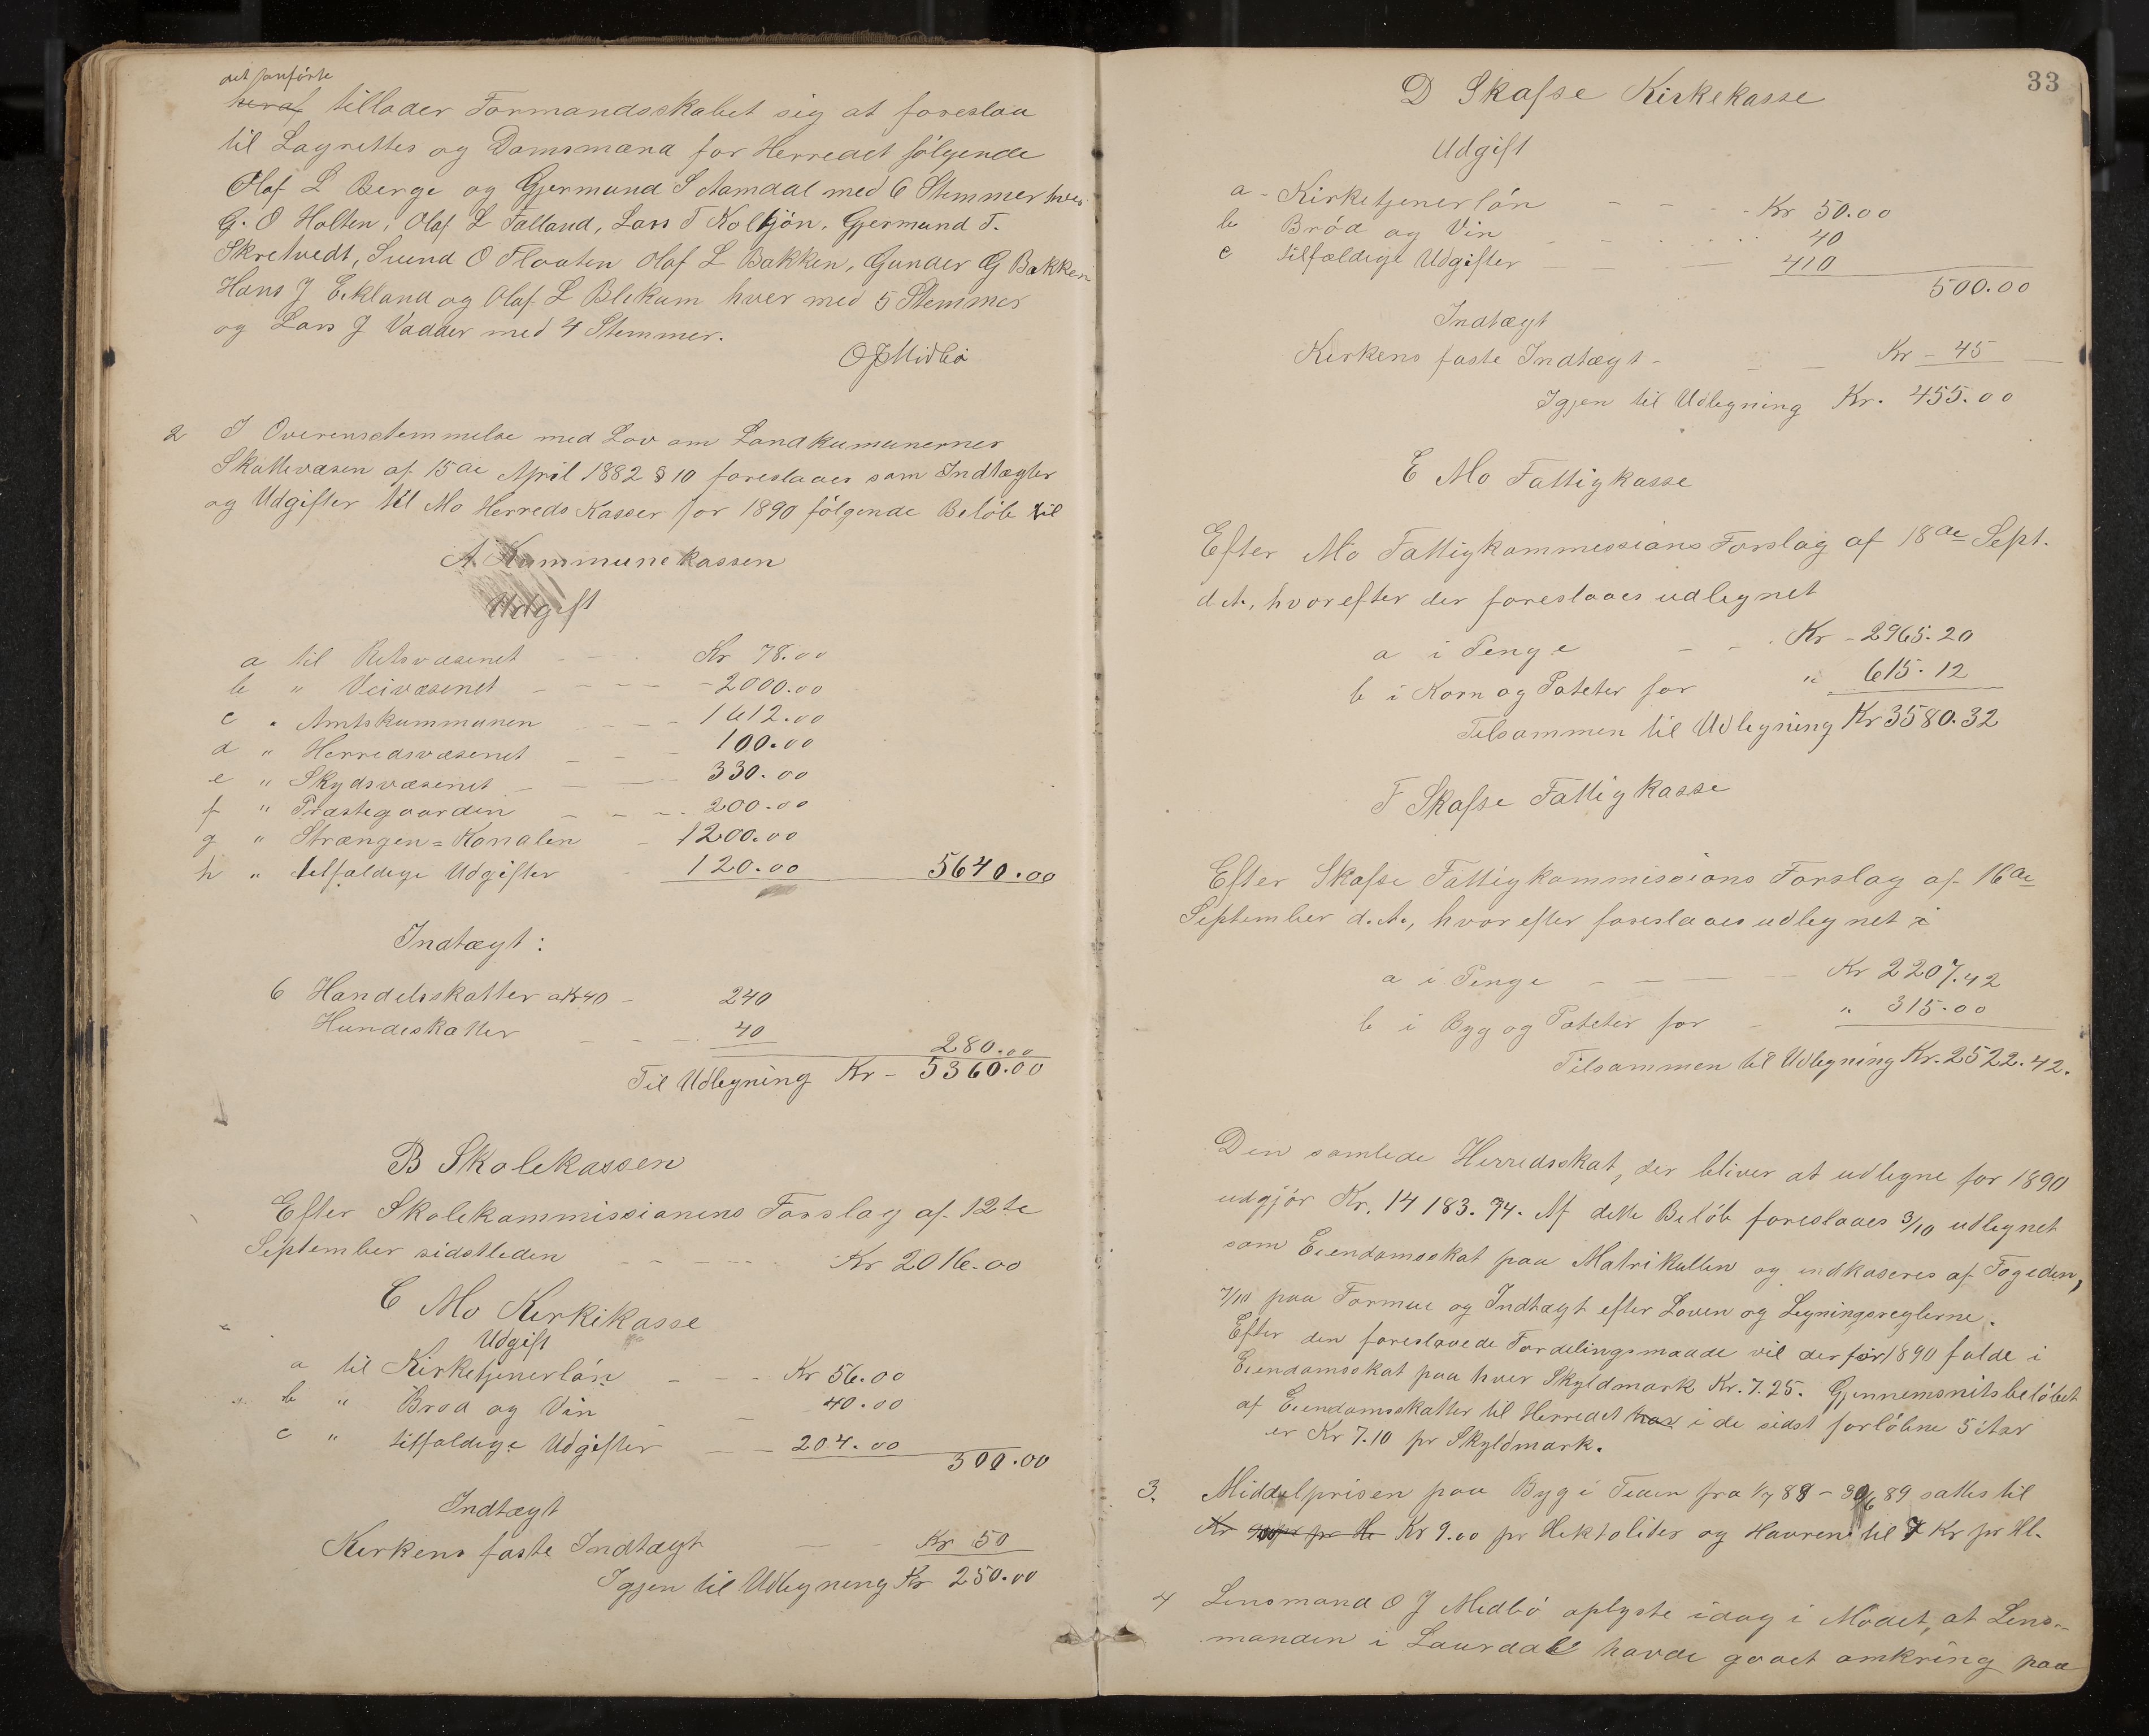 det anførte
heraf tillader Formandsskabet sig at foreslaa
til Lagrettes og Domsmænd for Herredet følgende
Olaf L Berge og Gjermund S Aamdal med 6 Stemmer hver
G. O Holten, Olaf L Falland, Lars T Koltjøn, Gjermund T.
Skretvedt, Svend O Flaaten Olaf L Bakken, Gunder G Bakken
Hans J Eekland og Olaf L Blekum hver med 5 Stemmer
og Lars J Vadder med 4 Stemmer.
O J Midbø
2 I Overensstemmelse med Lov om Landkumunernes
Skattevæsen af 15de April 1882 § 10 foreslaaes som Indtægter
og Udgifter til Mo Herreds Kasser for 1890 følgende Beløb til
A. Kommunekassen
Udgift
a til Retsvæsenet - - - Kr 78.00
b " Veivæsenet - - - - 2000.00
c " Amtskummunen - - - - 1612.00
d " Herredsvæsenet - - - 100.00
e " Skydsvæsenet - - - 330.00
f " Præstegaarden - - - 200.00
g " Strængen=Kanalen - 1200.00
h " tilfældige Udgifter - 120.00 5640.00
Indtægt:
6 Handelsskatter a Kr 40 - 240
Hundeskatter - - - - 40
280.00
Til Udligning Kr - 5360.00
B Skolekassen
Efter Skolekommissionens Forslag af 12te
September sidstleden - - - - Kr 2016.00
C Mo Kirkikasse
Udgift
a til Kirketjenerløn - - - Kr 56.00
b " Brød og Vin - - 40.00
c " tilfældige Udgifter - - 204.00
300.00
Indtægt
Kirkens faste Indtægt - - Kr 50
Igjen til Udligning Kr 250.00
33
D Skafse Kirkekasse
Udgift
a - Kirketjenerløn - - - Kr 50.00
b Brød og Vin - - - - 40
c tilfældige Udgifter - - - 410
500.00
Indtægt
Kirkens faste Indtægt - - - Kr - 45
Igjen til Udligning Kr. 455.00
E Mo Fattigkasse
Efter Mo Fattigkommissions Forslag af 18de Sept.
d.A., hvorefter der foreslaaes udlignet
a i Penge - - . Kr - 2965.20
b i Korn og Poteter for " 615.12
Tilsammen til Udligning Kr 3580.32
F Skafse Fattigkasse
Efter Skafse Fattigkommissions Forslag af 16de
September d.A., hvorefter foreslaaes udlignet i
a i Penge - - - - Kr 2207.42
b i Byg og Poteter for - " 315.00
Tilsammen til Udligning Kr. 2522.42.
Den samlede Herredsskat, der bliver at udligne for 1890
udgjør Kr. 14 183.74. Af dette Beløb foreslaaes 3/10 udlignet
som Eiendomsskat paa Matrikullen og indkaseres af Fogeden,
7/10 paa Formue og Indtægt efter Loven og Ligningsreglerne.
Efter den foreslaaede Fordelingsmaade vil der for 1890 falde i
Eiendomsskat paa hver Skyldmark Kr. 7.25. Gjennemsnitsbeløbet
af Eiendomsskatter til Herredet har i de sidst forløbne 5 Aar
er Kr 7.10 pr Skyldmark.
3. Middelprisen paa Byg i Tiden fra 1/7 88 - 30/6 89 sattes til
Kr pr Hl Kr 9.00 pr Hektoliter og Havren til 7 Kr pr Hl.
4 Lensmand O J Midbø oplyste idag i Mødet, at Lens-
manden i Laurdal havde gaaet omkring paa